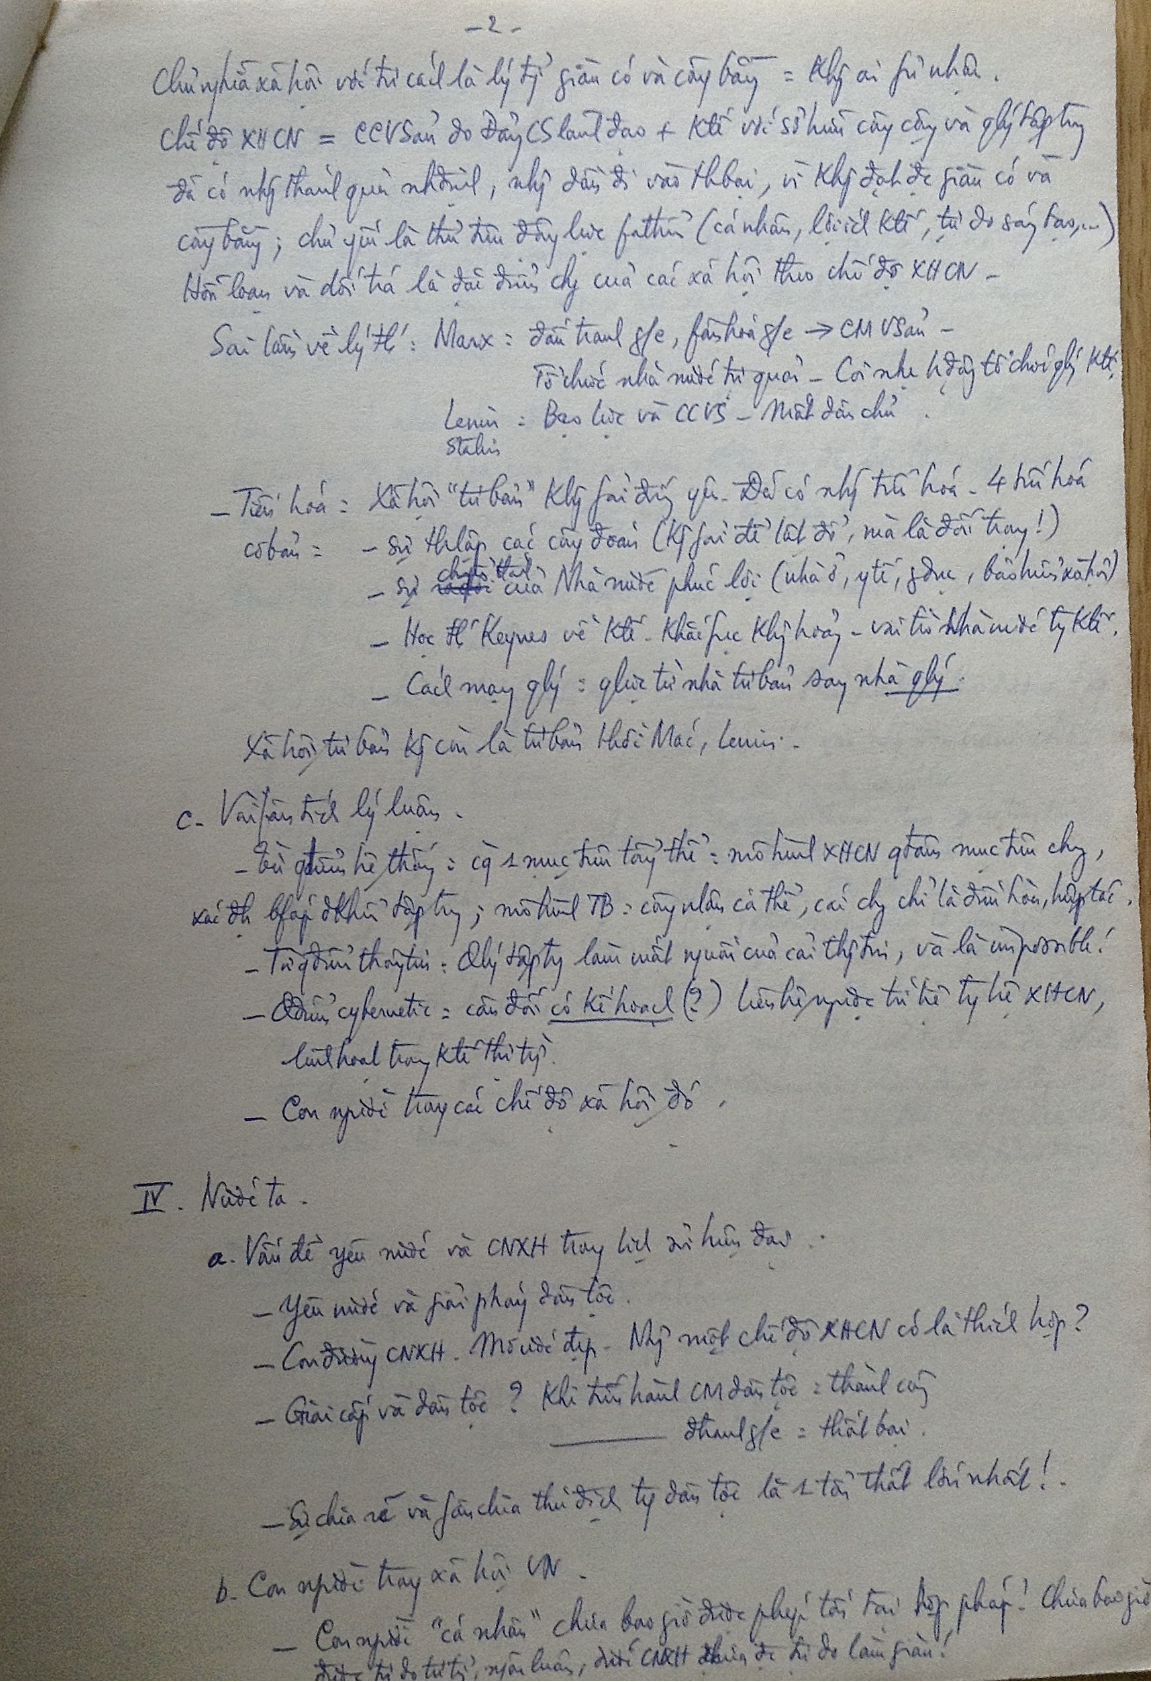 - 2 -
Chủ nghĩa xã hội với tư cách là lý tg̉ giàu có và công bằng = Khg ai fủ nhận.
Chế độ XHCN = CCVSản do Đảng CS lãnh đạo + Ktế với sở hữu công cộng và qlý tập trg
đã có nhg thành quả nhđịnh, nhg dần đi vào thbại, vì Khg đạt đc giàu có và
công bằng; chủ yếu là thủ tiêu động lực fát triển (cá nhân, lợi ích Ktế, tự do sáng tạo,...)
Hỗn loạn và dối trá là đặc điểm chg của các xã hội theo chế độ XHCN -
Sai lầm về lý th': Marx: đấu tranh g/c, fân hoá g/c → CMVSản -
Tổ chức nhà nước trị quan - Coi nhẹ hđộng tổ chức qlý Ktế.
Lenin : Bạo lực và CCVS - Mất dân chủ.
Stalin
- Tiến hoá: Xã hội "tư bản" Khg fải đứng yên. Đã có nhg tiến hoá - 4 tiến hoá
cơ bản = - Sự thlập các công đoàn (Kg fải để lật đổ, mà là đối trọng!)
- Sự hình thành của Nhà nước phúc lợi (nhà ở, y tế, gdục, bảo hiểm xã hội)
- Học th' Keynes về Ktế - Khắc fục Khg hoảng - vai trò Nhà nước tg Ktế.
- Cách mạng qlý = qlực từ nhà tư bản sang nhà qlý.
Xã hội tư bản Kg còn là tư bản thời Mác, Lenin.-
c- Vài fân tích lý luận.
- Từ qđiểm hệ thống: có 1 mục tiêu tổng thể = mô hình XHCN qđịnh mục tiêu chg,
xác đh bfáp đkhiển tập trg; mô hình TB = công nhận cá thể, cái chg chỉ là điều hòa, hợp tác.
- Từ qđiểm thông tin: Qlý tập trg làm mất nguồn của cải thg tin, và là impossible!
- Qđiểm cybernetic = cân đối có kế hoạch (?) liên hệ ngược trì trệ tg hệ XHCN,
linh hoạt trong Ktế thị trg.
- Con người trong các chế độ xã hội đó.
IV. Nước ta.
a. Vấn đề yêu nước và CNXH trong lịch sử hiện đại.
- Yêu nước và giải phóng dân tộc.
- Con đường CNXH. Mơ ước đẹp - Nhg một chế độ XHCN có là thích hợp?
- Giai cấp và dân tộc? Khi tiến hành CM dân tộc = thành công
——— đtranh g/c = thất bại.
- Sự chia rẽ và fân chia thù địch tg dân tộc là 1 tổn thất lớn nhất!-
b. Con người trong xã hội VN.
- Con người "cá nhân" chưa bao giờ được phép tồn tại hợp pháp! Chưa bao giờ
được tự do tư tg, ngôn luận, dưới CNXH chưa đc tự do làm giàu!